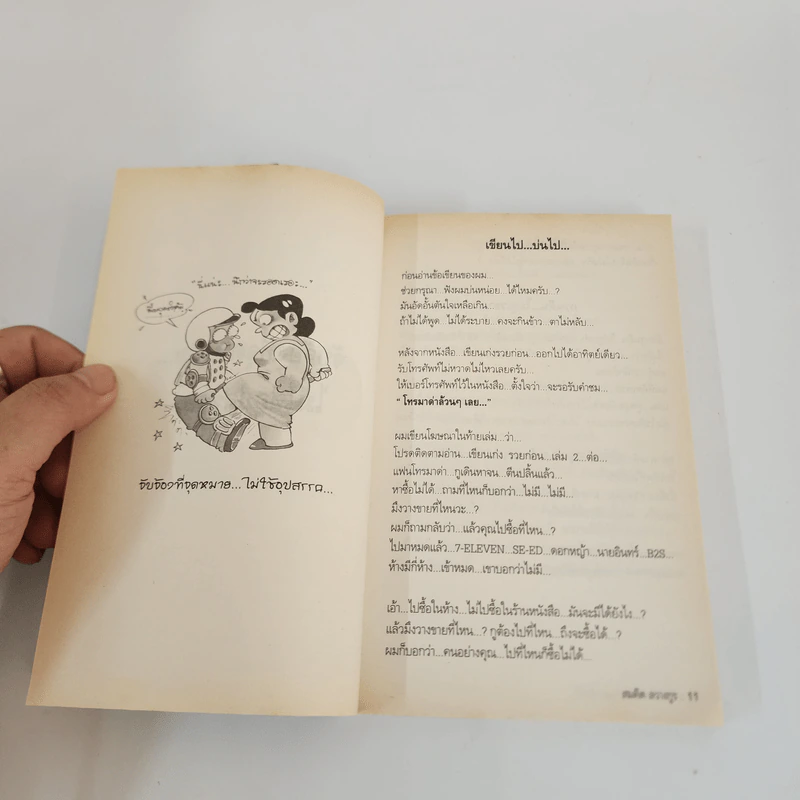 จับจ้องที่จุดหมาย...ไม่ใช่อุปสรรค...
เขียนไป...บ่นไป...
ก่อนอ่านข้อเขียนของผม...
ช่วยกรุณา...ฟังผมบ่นหน่อย...ได้ไหมครับ...?
มันอัดอั้นตันใจเหลือเกิน...
ถ้าไม่ได้พูด...ไม่ได้ระบาย...คงจะกินข้าว...ตาไม่หลับ...
หลังจากหนังสือ...เขียนเก่งรวยก่อน...ออกไปได้อาทิตย์เดียว...
รับโทรศัพท์ไม่หวาดไม่ไหวเลยครับ...
ให้เบอร์โทรศัพท์ไว้ในหนังสือ...ตั้งใจว่า...จะรอรับคำชม...
" โทรมาด่าล้วนๆ เลย..."
ผมเขียนโฆษณาในท้ายเล่ม...ว่า...
โปรดติดตามอ่าน...เขียนเก่ง รวยก่อน...เล่ม 2...ต่อ...
แฟนโทรมาด่า...กูเดินหาจน...ตีนปลิ้นแล้ว...
หาซื้อไม่ได้...ถามที่ไหนก็บอกว่า...ไม่มี...ไม่มี...
มึงวางขายที่ไหนวะ...?
ผมก็ถามกลับว่า...แล้วคุณไปซื้อที่ไหน...?
ไปมาหมดแล้ว...7-ELEVEN...SE-ED...ดอกหญ้า...นายอินทร์...B2S...
ห้างมีกี่ห้าง...เข้าหมด...เขาบอกว่าไม่มี...
เอ้า...ไปซื้อในห้าง...ไม่ไปซื้อในร้านหนังสือ...มันจะมีได้ยังไง...?
แล้วมึงวางขายที่ไหน...? กูต้องไปที่ไหน...ถึงจะซื้อได้...?
ผมก็บอกว่า...คนอย่างคุณ...ไปที่ไหนก็ซื้อไม่ได้...
สมคิด ลวางกูร 11